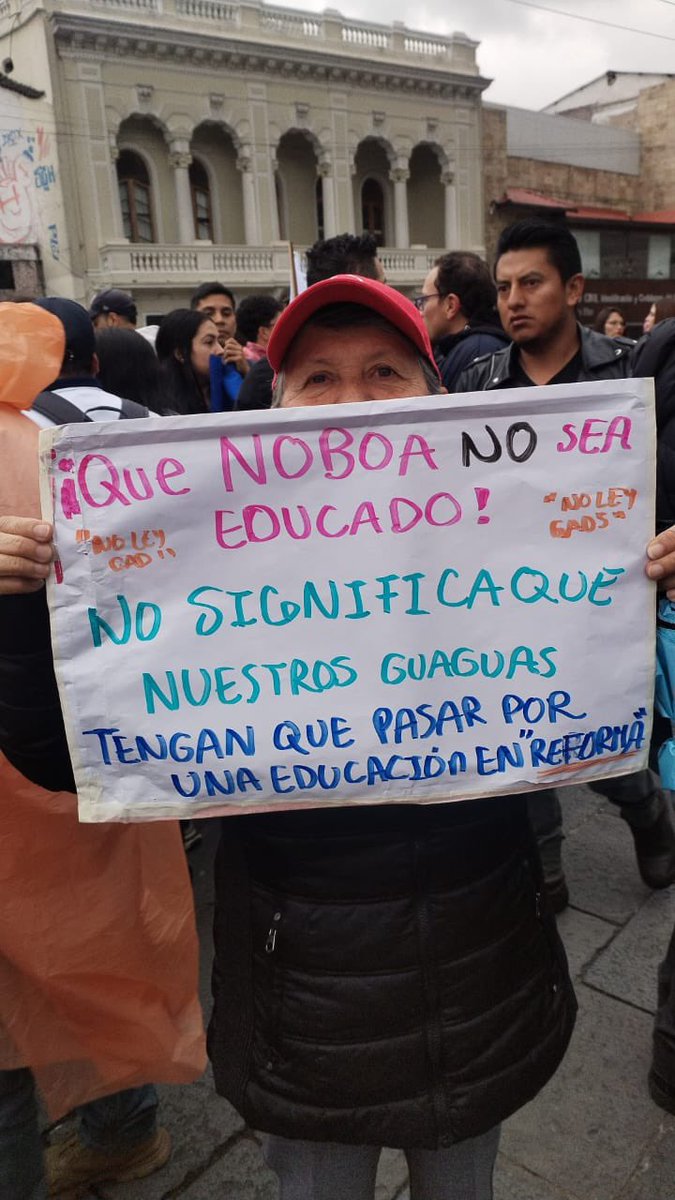 ¡QUE NOBOA NO SEA
EDUCADO!
"NO LEY
GAD"
"NO LEY
GADS"
NO SIGNIFICA QUE
NUESTROS GUAGUAS
TENGAN QUE PASAR POR
UNA EDUCACIÓN EN "REFORMA"